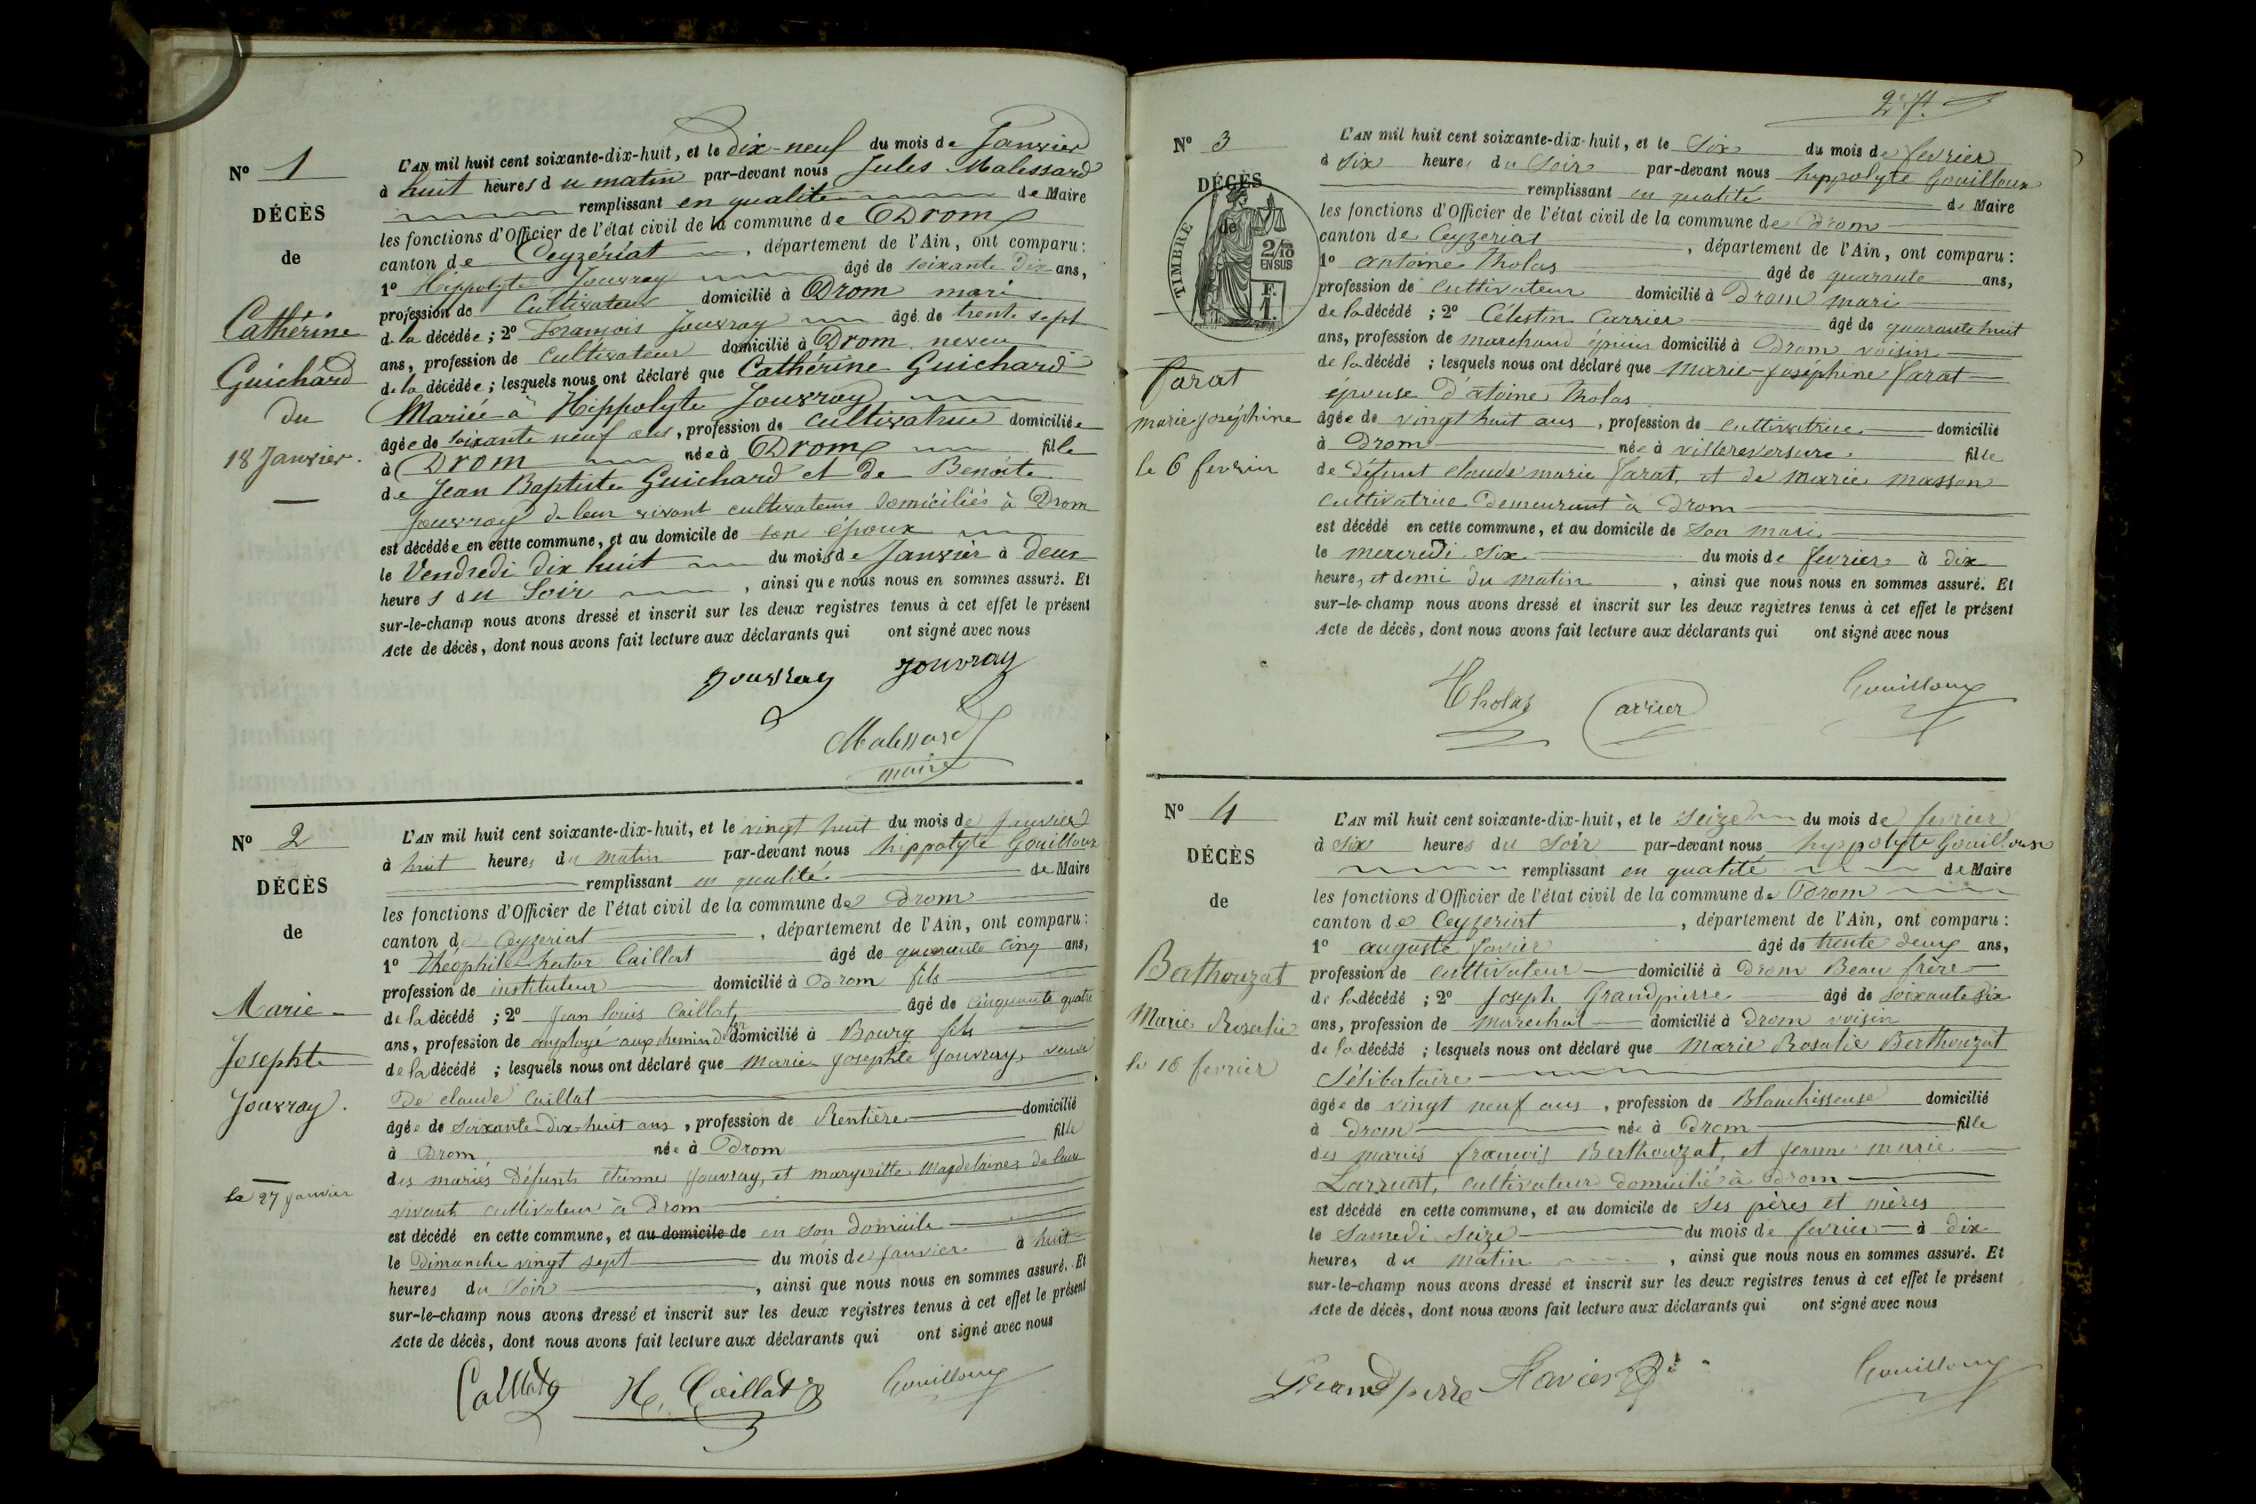 Nº 1
DÉCÈS
de
Catherine
Guichard
du
18 Janvier.
L'AN mil huit cent soixante-dix-huit, et le dix-neuf du mois de Janvier
à huit heures du matin par-devant nous Jules Malessard
remplissant en qualité de Maire
les fonctions d'Officier de l'état civil de la commune de Drom
canton de Ceyzériat, département de l'Ain, ont comparu:
1º Hippolyte Jouvray âgé de soixante dix ans,
profession de Cultivateur domicilié à Drom mari
de la décédée; 2º François Jouvray âgé de trente sept
ans, profession de cultivateur domicilié à Drom neveu
de la décédée; lesquels nous ont déclaré que Cathérine Guichard
Mariée à Hippolyte Jouvray
âgée de soixante neuf ans, profession de cultivatrice domiciliée
à Drom née à Drom fille
de Jean Baptiste Guichard et de Benoite
Jouvray de leur vivant cultivateurs domiciliés à Drom
est décédée en cette commune, et au domicile de son époux
le Vendredi dix huit du mois de Janvier à deux
heures du Soir, ainsi que nous nous en sommes assuré. Et
sur-le-champ nous avons dressé et inscrit sur les deux registres tenus à cet effet le présent
Acte de décès, dont nous avons fait lecture aux déclarants qui ont signé avec nous
Jouvray Jouvray
Malessard
maire
Nº 2
DÉCÈS
de
Marie
Josephte
Jouvray.
le 27 janvier
L'AN mil huit cent soixante-dix-huit, et le vingt huit du mois de janvier
à huit heures du matin par-devant nous hippolyte Gouilloux
remplissant en qualité de Maire
les fonctions d'Officier de l'état civil de la commune de Drom
canton de Ceyzeriat, département de l'Ain, ont comparu:
1º Théophile hector Caillat âgé de quarante cinq ans,
profession de instituteur domicilié à Drom fils
de la décédé; 2º Jean Louis Caillat âgé de cinquante quatre
ans, profession de employé aux chemin de fer domicilié à Bourg fils
de la décédé; lesquels nous ont déclaré que Marie Josephte Jouvray, veuve
De claude Caillat
âgée de soixante-dix-huit ans, profession de Rentière domicilié
à Drom née à Drom fille
des mariés Défunts Etienne Jouvray, et margeritte Magdelaine, de leur
vivant cultivateur à Drom
est décédé en cette commune, et au domicile de en son domicile
le Dimanche vingt sept du mois de janvier à huit
heures du soir, ainsi que nous nous en sommes assuré. Et
sur-le-champ nous avons dressé et inscrit sur les deux registres tenus à cet effet le présent
Acte de décès, dont nous avons fait lecture aux déclarants qui ont signé avec nous
Caillat H. Caillat Gouilloux
2e f.
Nº 3
DÉCÈS
de
TIMBRE
2/10
EN SUS
F.
1.
Farat
marie joséphine
le 6 fevrier
L'AN mil huit cent soixante-dix-huit, et le Six du mois de fevrier
à Six heures du Soir par-devant nous hyppolyte Gouilloux
remplissant en qualité de Maire
les fonctions d'Officier de l'état civil de la commune de Drom
canton de Ceyzeriat, département de l'Ain, ont comparu:
1º antoine Tholas âgé de quarante ans,
profession de cultivateur domicilié à Drom mari
de la décédé; 2º Célestin Carrier âgé de quarante huit
ans, profession de marchand épicier domicilié à Drom voisin
de la décédé; lesquels nous ont déclaré que Marie-Joséphine Farat
épouse d'atoine Tholas
âgée de vingt huit ans, profession de cultivatrice domicilié
à Drom née à villereversure fille
de défunt claude marie Farat, et de marie masson
cultivatrice Demeurant à Drom
est décédé en cette commune, et au domicile de son mari
le mercredi Six du mois de fevrier à dix
heures et demi du matin, ainsi que nous nous en sommes assuré. Et
sur-le-champ nous avons dressé et inscrit sur les deux registres tenus à cet effet le présent
Acte de décès, dont nous avons fait lecture aux déclarants qui ont signé avec nous
Tholas Carrier Gouilloux
Nº 4
DÉCÈS
de
Berthouzat
Marie Rosalie
le 16 fevrier
L'AN mil huit cent soixante-dix-huit, et le Seize du mois de fevrier
à Six heures du Soir par-devant nous hyppolyte Gouilloux
remplissant en qualité de Maire
les fonctions d'Officier de l'état civil de la commune de Drom
canton de Ceyzeriat, département de l'Ain, ont comparu:
1º auguste favier âgé de trente deux ans,
profession de cultivateur domicilié à Drom Beau frère
de la décédé; 2º Joseph Grandpierre âgé de soixante Six
ans, profession de marechal domicilié à Drom voisin
de la décédé; lesquels nous ont déclaré que Marie Rosalie Berthouzat
Sélibataire
âgée de vingt neuf ans, profession de Blanchisseuse domicilié
à Drom née à Drom fille
des mariés francois Berthouzat, et Jeanne marie
cultivateur domicilié à Drom
est décédé en cette commune, et au domicile de ses pères et mères
le Samedi Seize du mois de fevrier à dix
heures du matin, ainsi que nous nous en sommes assuré. Et
sur-le-champ nous avons dressé et inscrit sur les deux registres tenus à cet effet le présent
Acte de décès, dont nous avons fait lecture aux déclarants qui ont signé avec nous
Grandpierre Favier Gouilloux